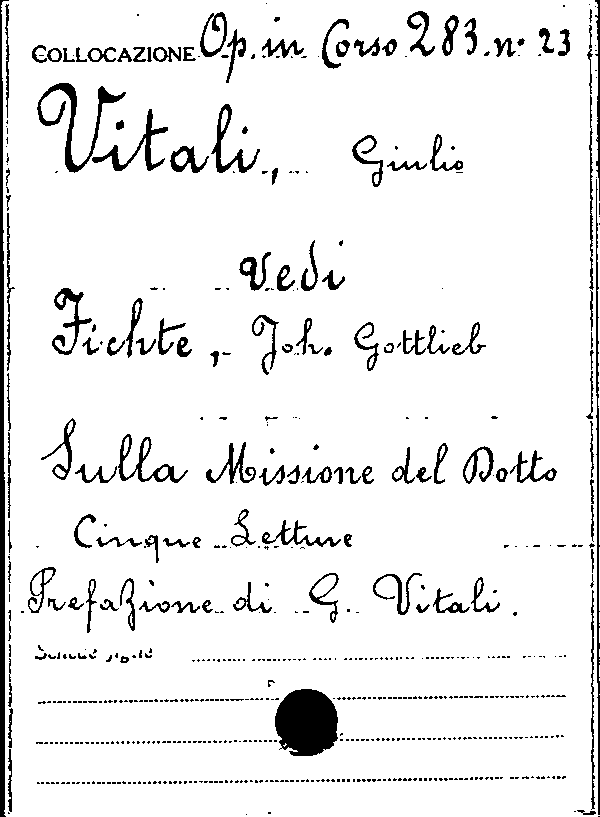 COLLOCAZIONE Op. in Corso 283. n° 23
Vitali, Giulio
Vedi
Fichte, Joh. Gottlieb
Sulla Missione del Dotto
Cinque Letture
Prefazione di G. Vitali.